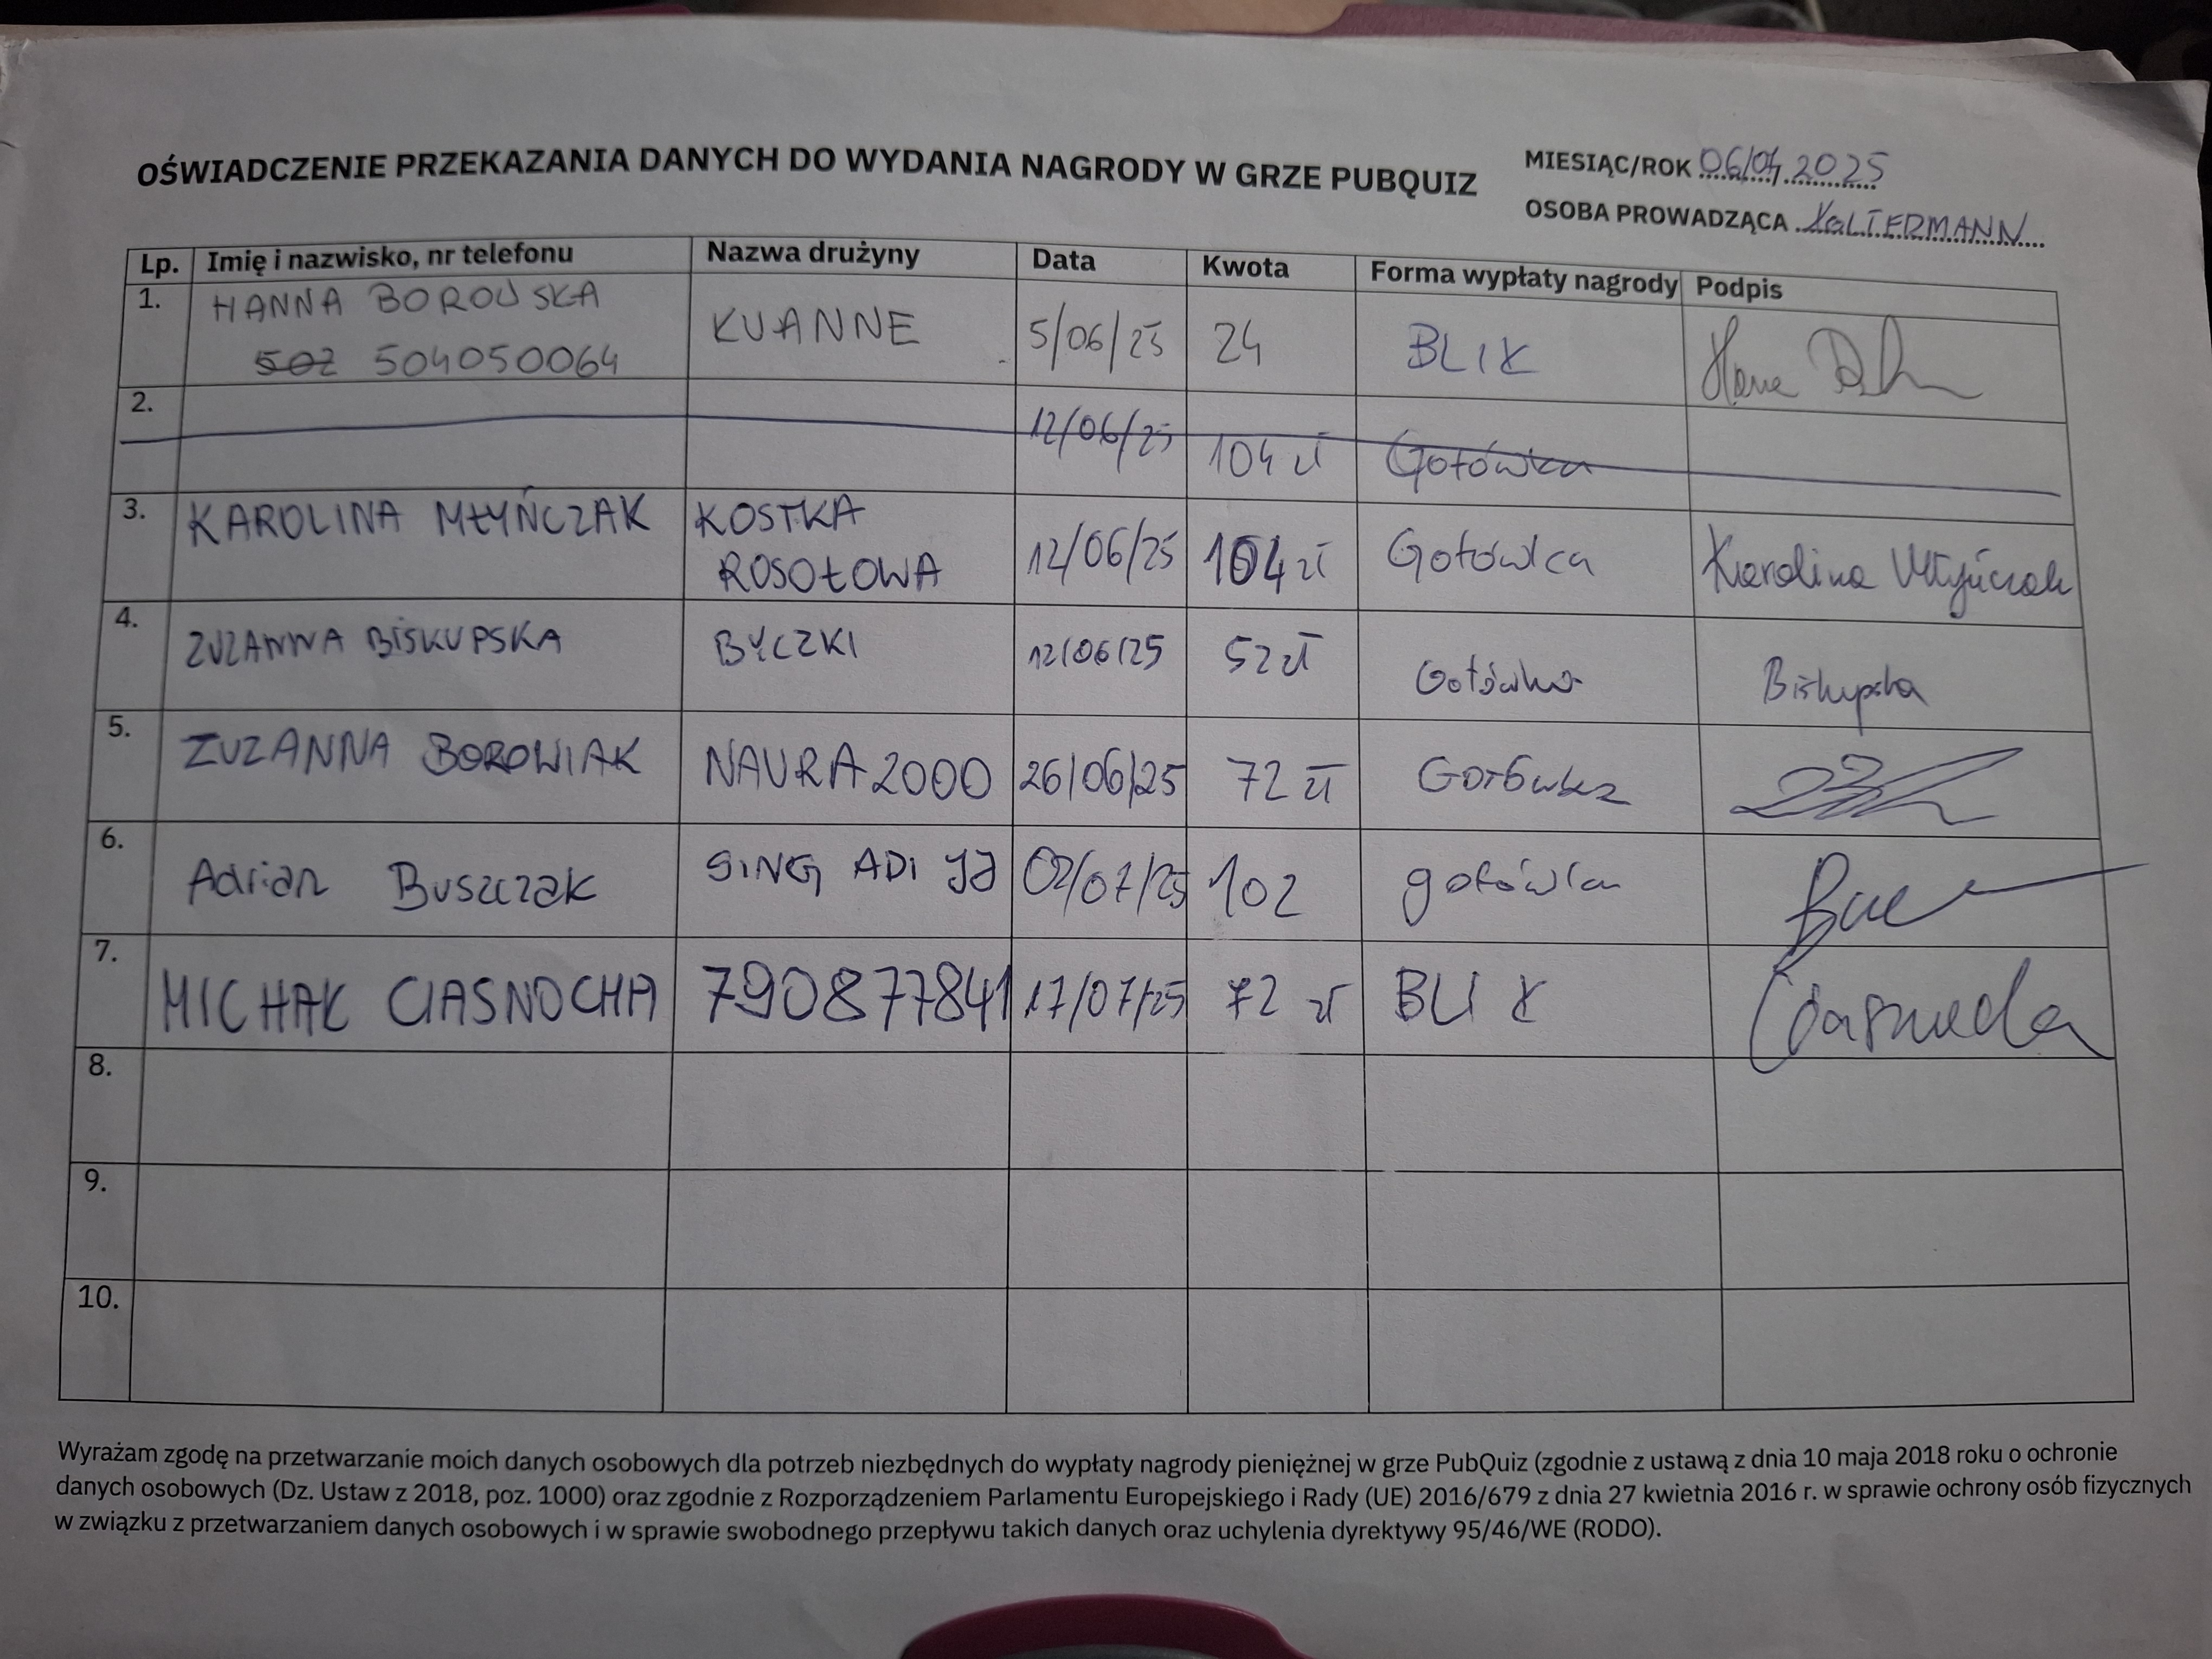 OŚWIADCZENIE PRZEKAZANIA DANYCH DO WYDANIA NAGRODY W GRZE PUBQUIZ
MIESIĄC/ROK 06/07 2025
OSOBA PROWADZĄCA KOLTERMANN
Lp. Imię i nazwisko, nr telefonu Nazwa drużyny Data Kwota Forma wypłaty nagrody Podpis
1. HANNA BOROWSKA KUANNE 5/06/25 24 BLIK
502 504050064
2. 12/06/25 104 zł Gotówka
3. KAROLINA MŁYŃCZAK KOSTKA ROSOŁOWA 12/06/25 104 zł Gotówka Karolina Młyńczak
4. ZUZANNA BISKUPSKA BYCZKI 12/06/25 52 zł Gotówka Biskupska
5. ZUZANNA BOROWIAK NAURA 2000 26/06/25 72 zł Gotówka
6. Adrian Buszczak SING ADI 02/07/25 102 gotówka
7. MICHAŁ CIASNOCHA 790877841 17/07/25 72 zł BLIK Ciasnocha
8.
9.
10.
Wyrażam zgodę na przetwarzanie moich danych osobowych dla potrzeb niezbędnych do wypłaty nagrody pieniężnej w grze PubQuiz (zgodnie z ustawą z dnia 10 maja 2018 roku o ochronie
danych osobowych (Dz. Ustaw z 2018, poz. 1000) oraz zgodnie z Rozporządzeniem Parlamentu Europejskiego i Rady (UE) 2016/679 z dnia 27 kwietnia 2016 r. w sprawie ochrony osób fizycznych
w związku z przetwarzaniem danych osobowych i w sprawie swobodnego przepływu takich danych oraz uchylenia dyrektywy 95/46/WE (RODO).